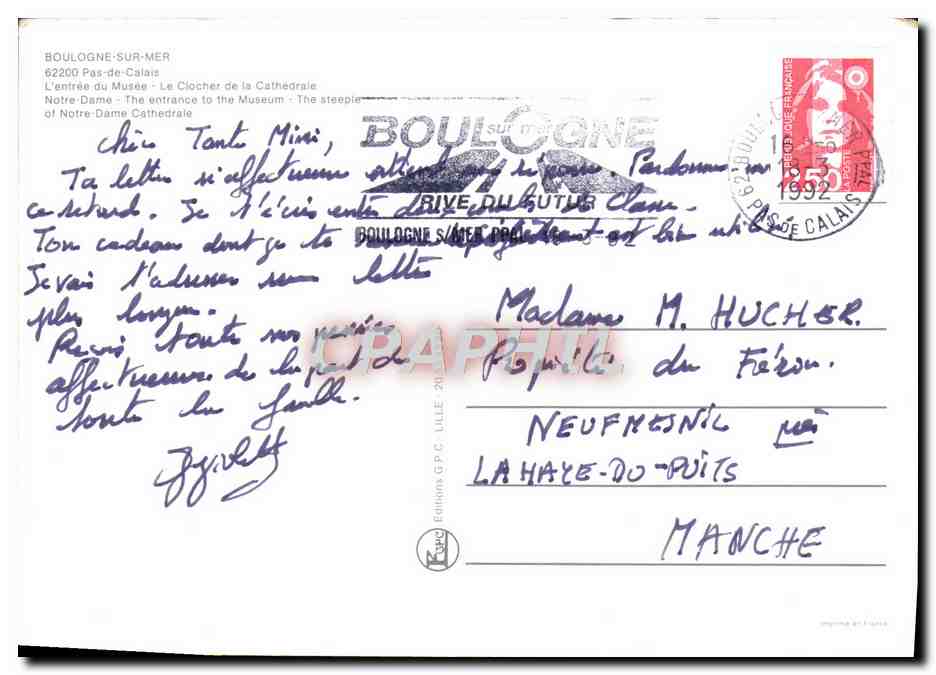 BOULOGNE-SUR-MER
62200 Pas-de-Calais
L'entrée du Musée - Le Clocher de la Cathédrale
Notre-Dame - The entrance to the Museum - The steeple
of Notre-Dame Cathedrale
Chère Tante Mimi,
Ta lettre si affectueuse attend ma réponse. Pardonne moi
ce retard. Je t'écris entre deux de classe.
Ton cadeau dont je te est bien utilisé.
Je vais t'adresser une lettre
plus longue.
Reçois toute nos pensées
affectueuses de la part de
toute la famille.
BOULOGNE
sur mer
RIVE DU FUTUR
BOULOGNE S/MER PPAL
REPUBLIQUE FRANÇAISE
2,50
LA POSTE
1992
62 BOULOGNE
PAS DE CALAIS
Madame M. HUCHER.
Propriété du Féron.
NEUFMESNIL près
LA HAYE-DU-PUITS
MANCHE
CPAPHIL
Editions G.P.C. - LILLE - 20
GPC
Imprimé en France